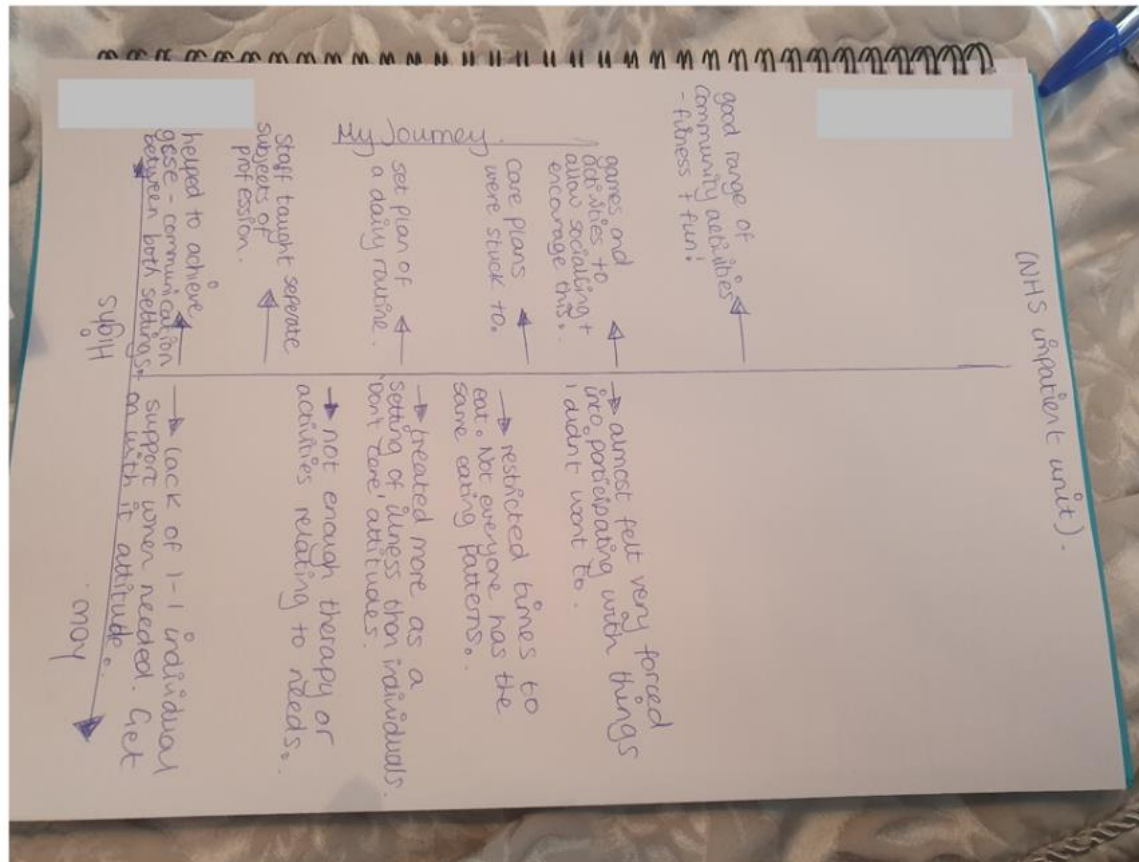 (NHS impatient unit).
good range of
community activities
- fitness + fun!
games and
activities to
allow socialing +
encourage this.
My Journey.
care plans
were stuck to.
set plan of
a daily routine.
Staff taught seperate
subjects of
profession.
helped to achieve
gcse - communication
between both settings.
Highs
almost felt very forced
into participating with things
I didnt want to.
restricted times to
eat. Not everyone has the
same eating patterns.
treated more as a
setting of illness than individuals.
'Don't care' attitudes.
not enough therapy or
activities relating to needs.
lack of 1-1 individual
support when needed. Get
on with it attitude.